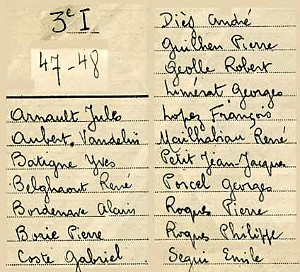 3e I
47-48
Arnault Jules
Aubert Vandelin
Batigne Yves
Belghaout René
Bordenave Alain
Bosie Pierre
Coste Gabriel
Diès André
Guilhen Pierre
Geolle Robert
Limerat Georges
Lopez François
Mailhabiau René
Petit Jean-Jacques
Porcel Georges
Roques Pierre
Roques Philippe
Segui Emile